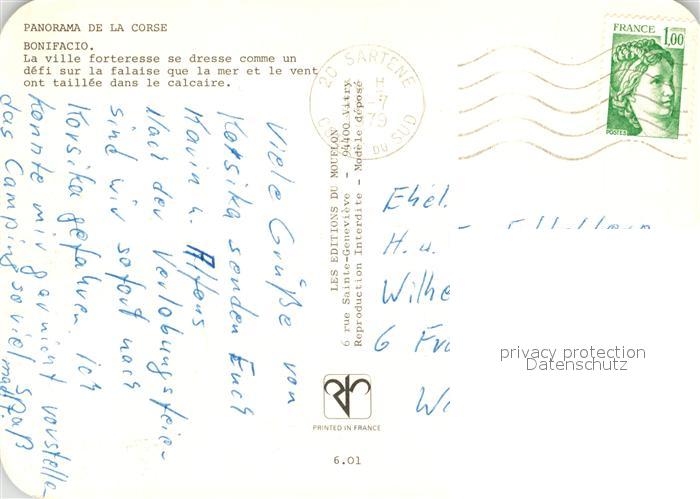 PANORAMA DE LA CORSE
BONIFACIO.
La ville forteresse se dresse comme un
défi sur la falaise que la mer et le vent
ont taillée dans le calcaire.
Viele Grüße von
Korsika senden Euch
Karin u. Alfons
Nach der Verlobungsfeier
sind wir sofort nach
Korsika gefahren ich
konnte mir gar nicht vorstellen
das Camping so viel Spaß
macht.
LES EDITIONS DU MOUFLON
6 rue Sainte-Geneviève - 94400 Vitry
Reproduction Interdite - Modèle déposé
20 SARTENE
-7
79
DU SUD
FRANCE 1,00
POSTES
Ehel.
H. u.
Wilhe
6 Fr
W
privacy protection
Datenschutz
PRINTED IN FRANCE
6.01